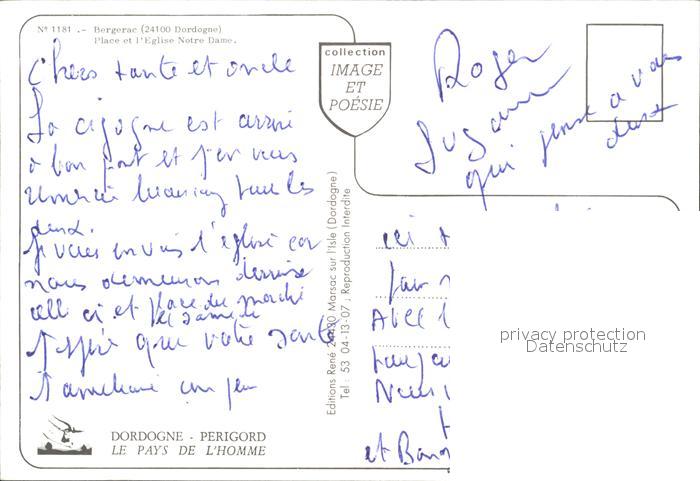 Nº 1181 .- Bergerac (24100 Dordogne)
Place et l'Eglise Notre Dame.
Chers tante et oncle
La cigogne est arrivé
a bon port et j'en vous
remercie beaucoup tous les
deux.
Je vous envois l'église car
nous demeurons derrière
celle ci et Place du marché
les samedi
J'espère que votre santé
s'améliore un peu
collection
IMAGE
ET
POÉSIE
Roger
Suzanne
qui pense a vous
deux
Editions René 24430 Marsac sur l'Isle (Dordogne)
Tel : 53 04-13-07 ; Reproduction Interdite
ici
Avec
Nous
et Bon
privacy protection
Datenschutz
DORDOGNE - PERIGORD
LE PAYS DE L'HOMME